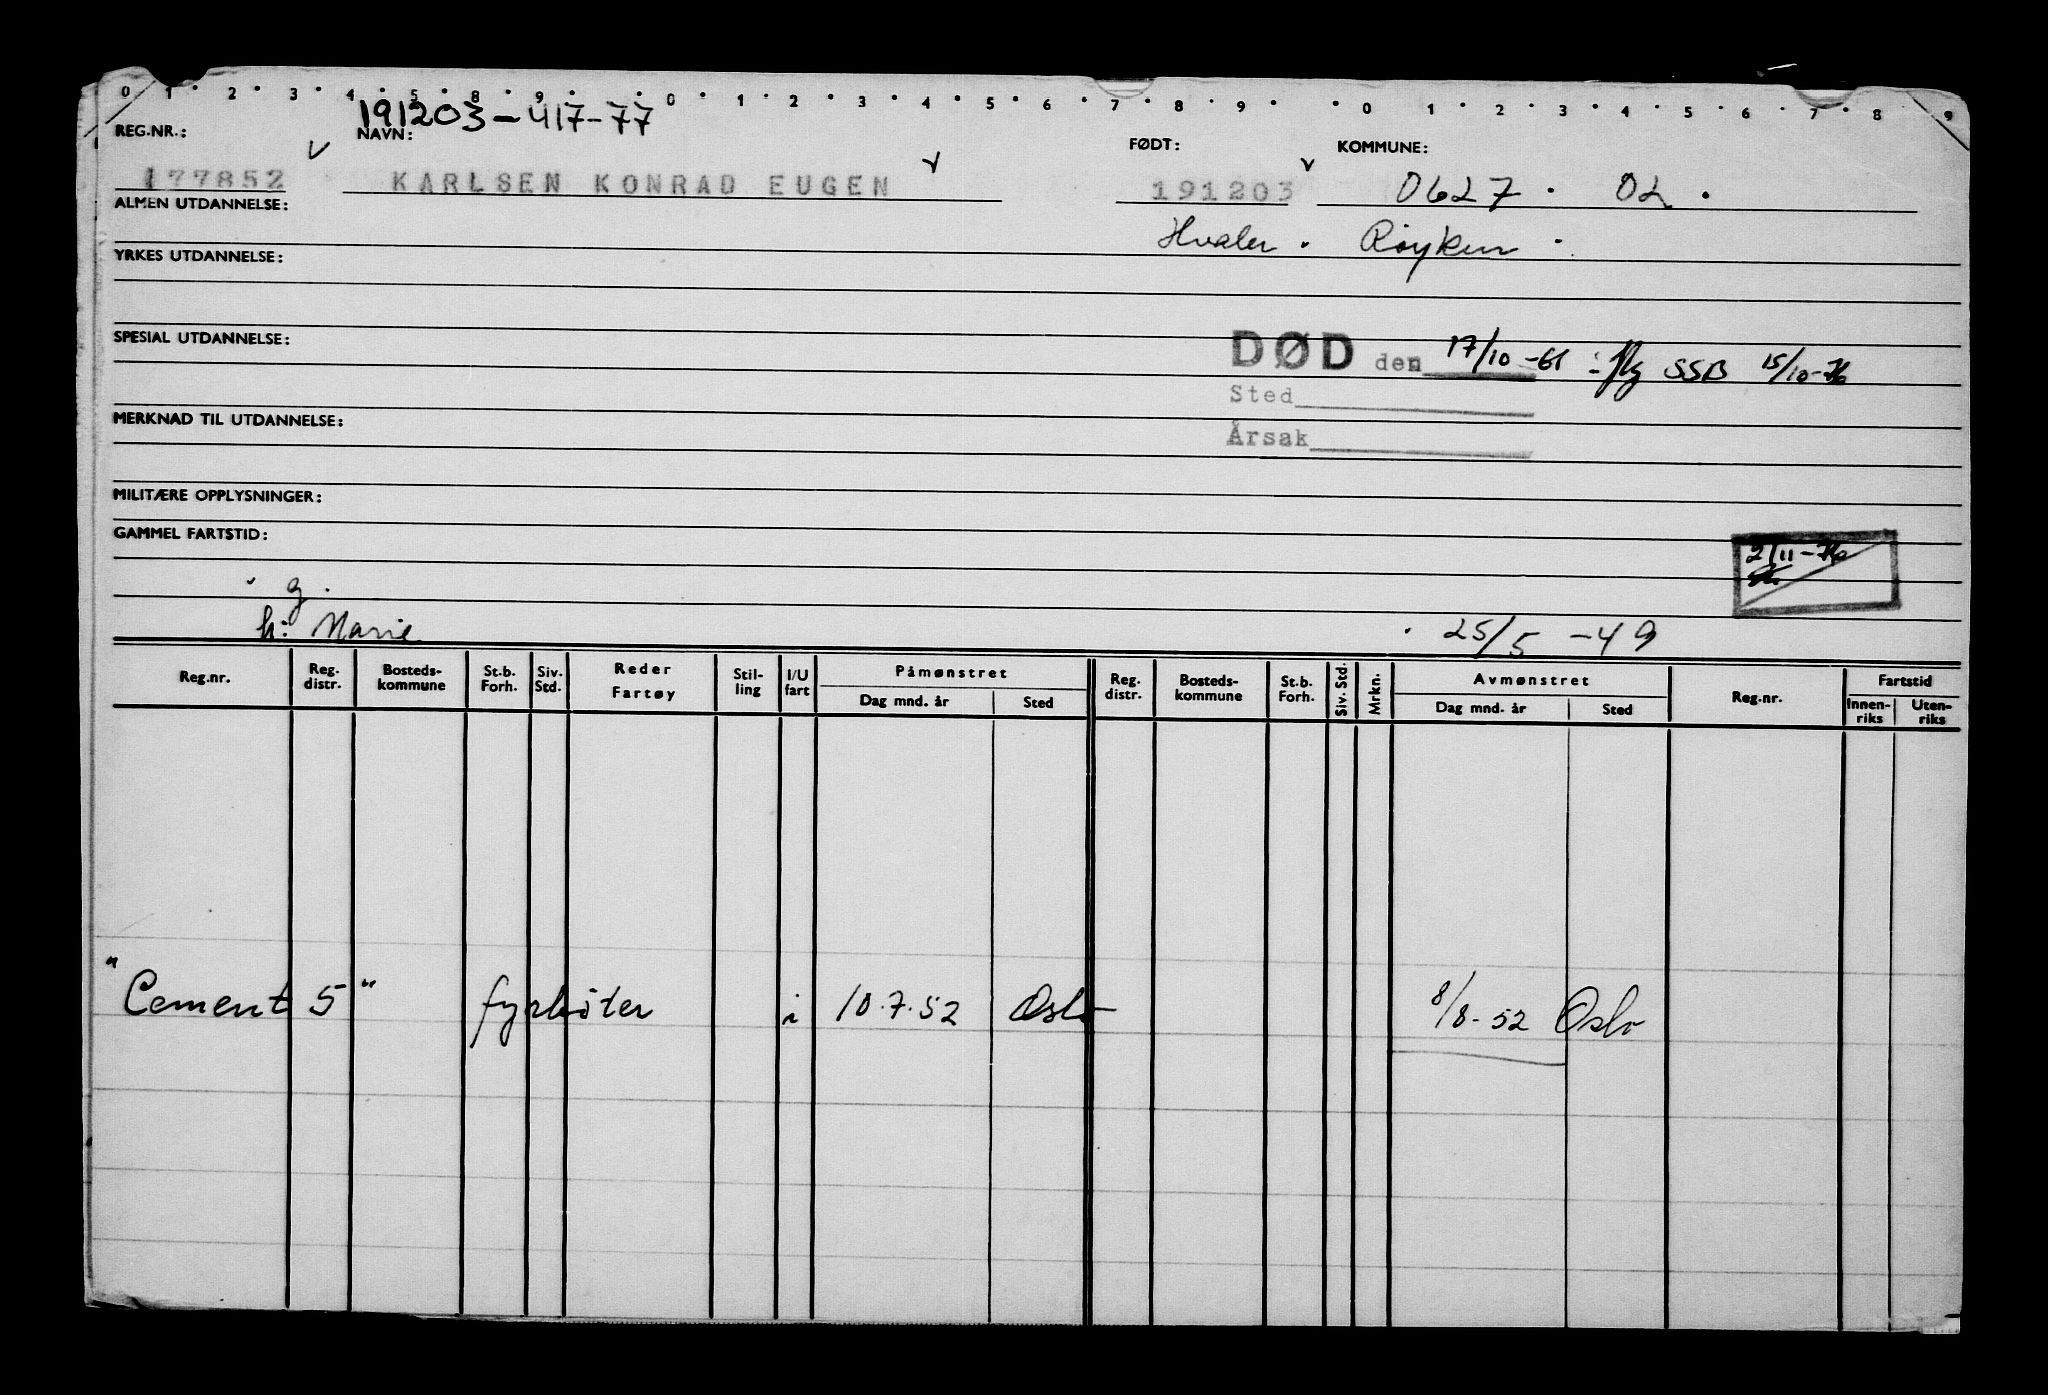 0 1 2 3 4 5 8 9 0 1 2 3 4 5 6 7 8 9 0 1 2 3 4 5 6 7 8 9
191203-417-77
REG.NR.: NAVN: FØDT: KOMMUNE:
177852 KARLSEN KONRAD EUGEN 191203 0627 . 02 .
ALMEN UTDANNELSE:
Hvaler . Røyken .
YRKES UTDANNELSE:
SPESIAL UTDANNELSE:
DØD den 17/10-61 SSB 15/10-76
Sted
MERKNAD TIL UTDANNELSE:
Årsak
MILITÆRE OPPLYSNINGER:
GAMMEL FARTSTID:
2/11-76
g.
h: Marie 25/5 -49
Reg.nr. Reg. distr. Bosteds-kommune St.b. Forh. Siv. Std. Reder Fartøy Stil-ling I/U fart Påmønstret Reg. distr. Bosteds-kommune St.b. Forh. Siv. Std. Mrkn. Avmønstret Reg.nr. Fartstid
Dag mnd. år Sted Dag mnd. år Sted Innen-riks Uten-riks
"Cement 5" fyrbøter i 10.7.52 Oslo 8/8-52 Oslo